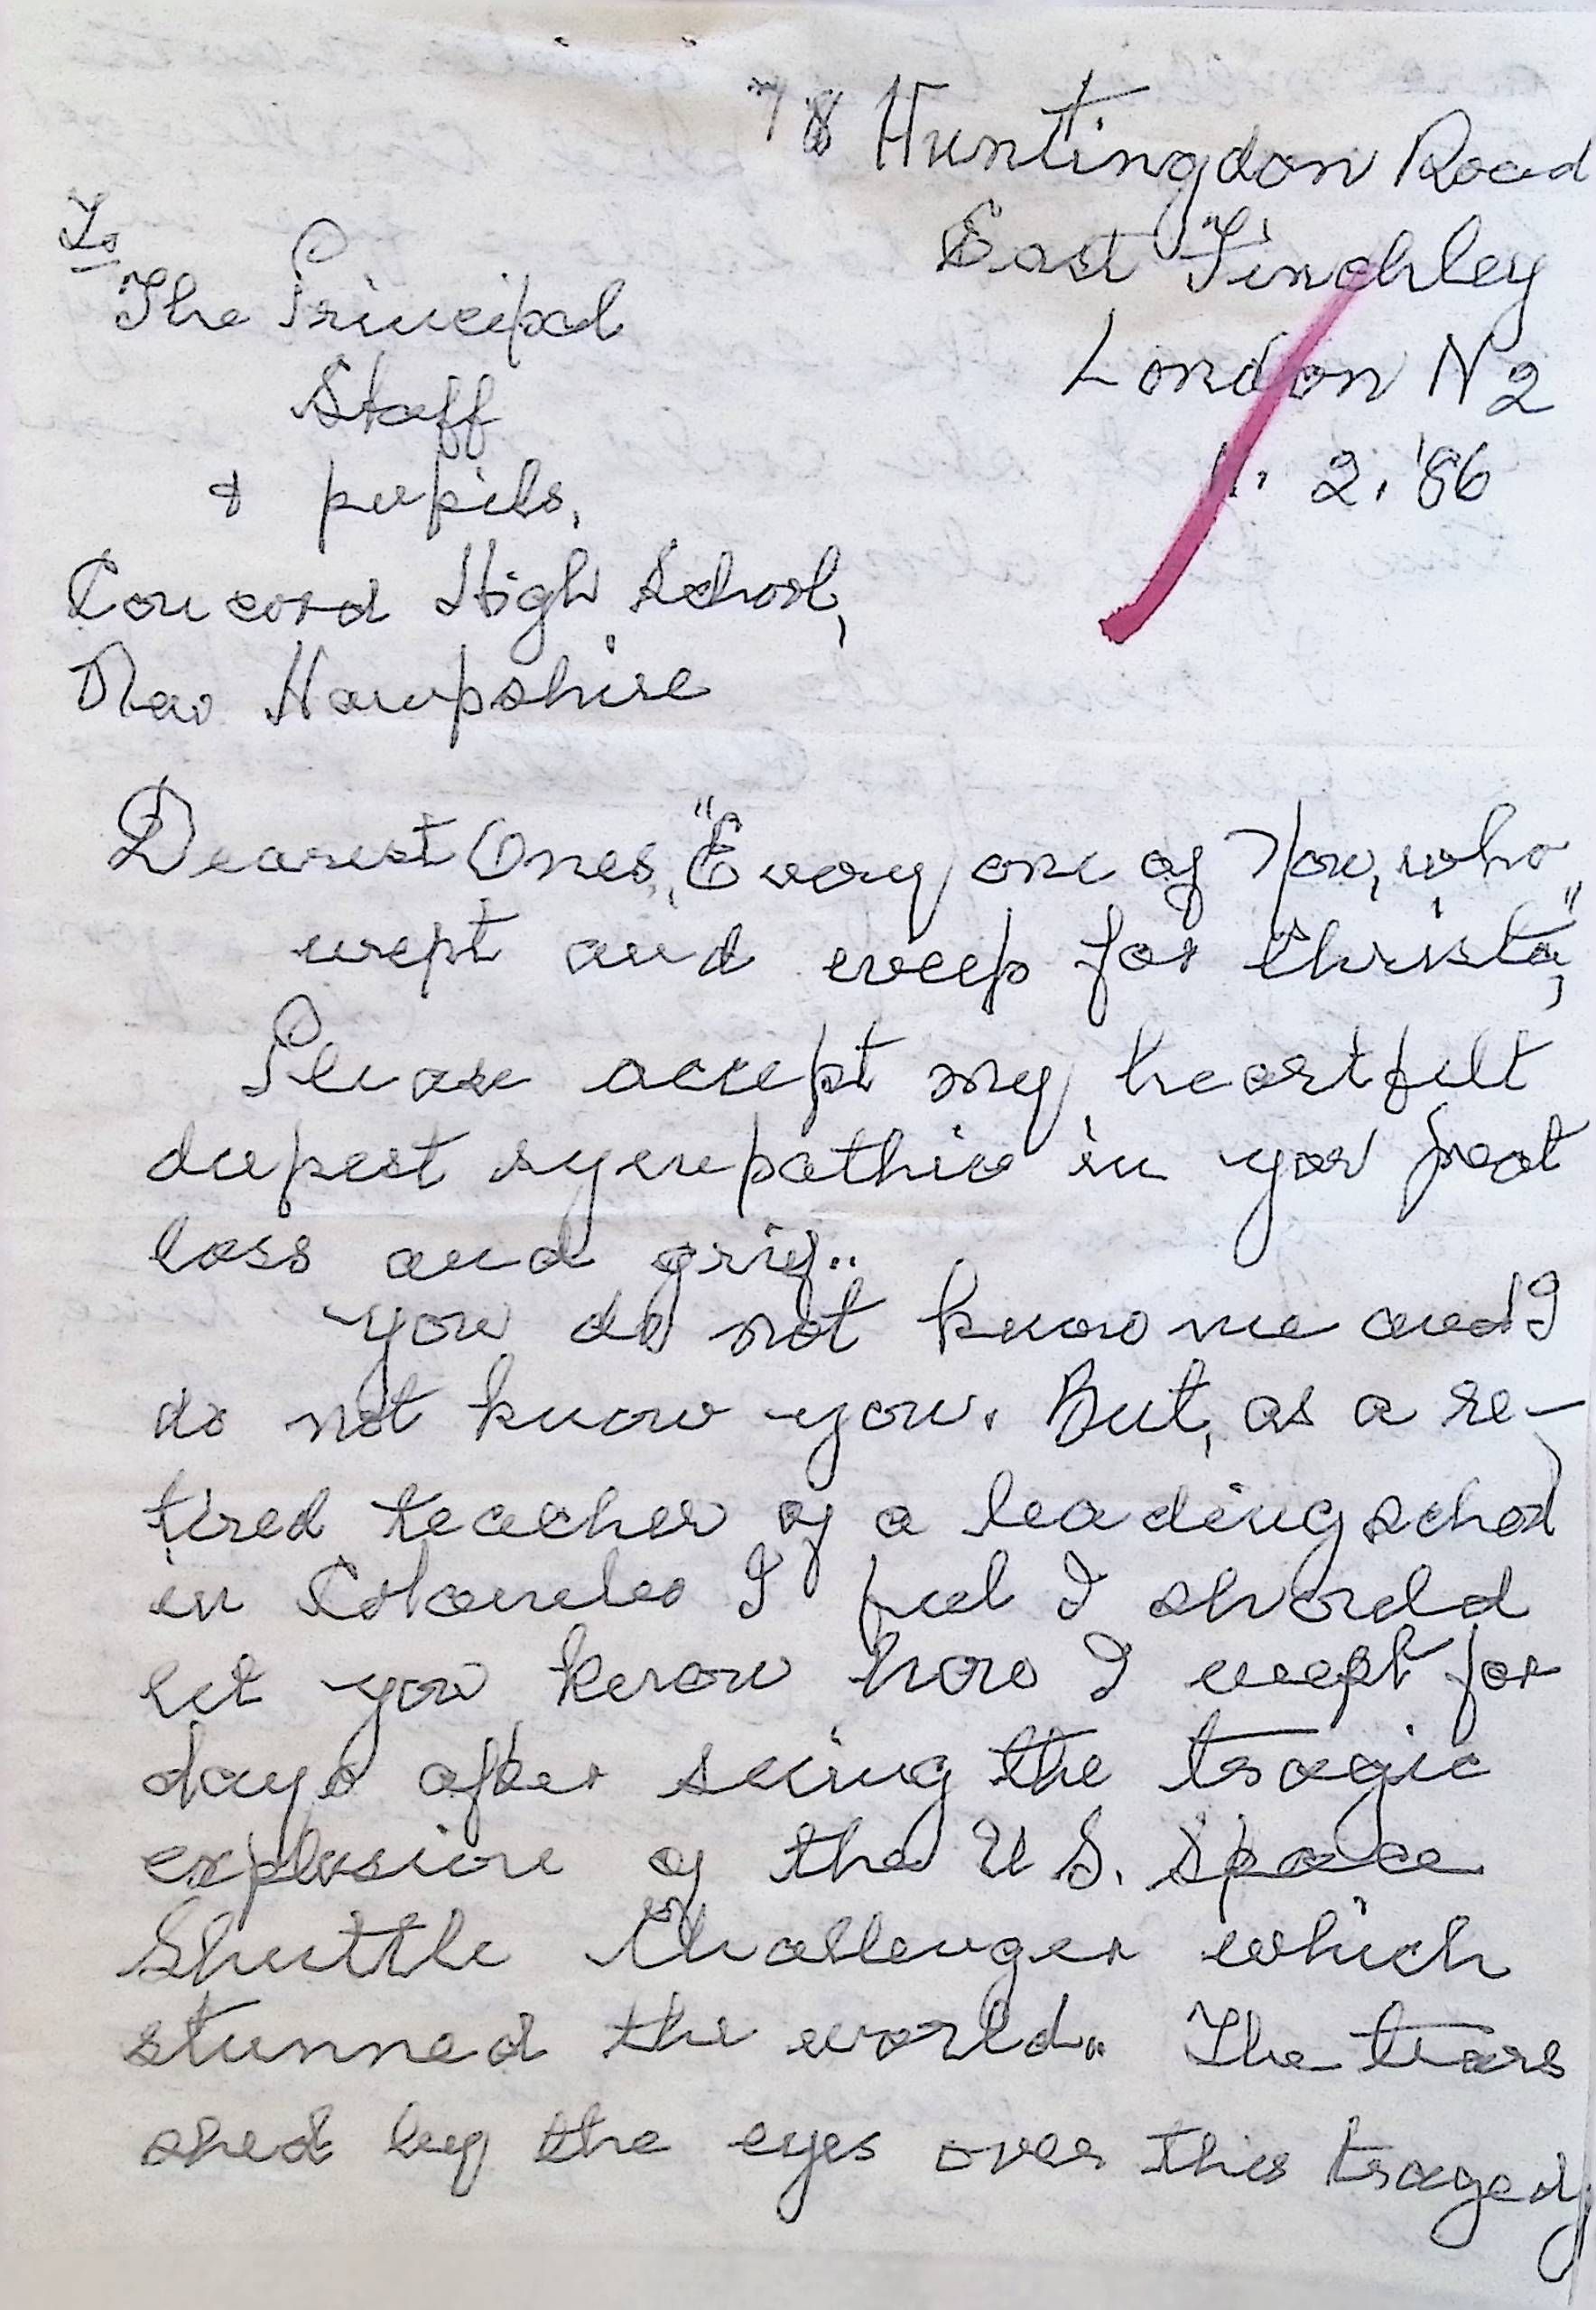 78 Huntingdon Road
East Finchley
London N2
2. '86
To
The Principal
Staff
& pupils,
Concord High School,
New Hampshire
Dearest Ones, "Every one of You, who
wept and weep for Christa",
Please accept my heartfelt
deepest sympathies in your great
loss and grief..
You do not know me and I
do not know you. But, as a re-
tired teacher of a leading school
in I feel I should
let you know how I wept for
days after seeing the tragic
explosion of the U S. Space
Shuttle Challenger which
stunned the world.. The tears
shed by the eyes over this tragedy